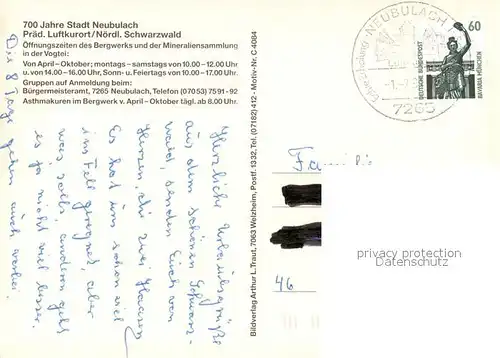 700 Jahre Stadt Neubulach
Präd. Luftkurort/Nördl. Schwarzwald
Öffnungszeiten des Bergwerks und der Mineraliensammlung
in der Vogtei:
Von April – Oktober; montags – samstags von 10.00 – 12.00 Uhr
u. von 14.00 – 16.00 Uhr, Sonn- u. Feiertags von 10.00 – 17.00 Uhr.
Gruppen auf Anmeldung beim:
Bürgermeisteramt, 7265 Neubulach, Telefon (07053) 7591 - 92
Asthmakuren im Bergwerk v. April – Oktober tägl. ab 8.00 Uhr.
Die 8 Tage gehen auch vorbei.
Herzliche Urlaubsgrüße
aus dem schönen Schwarz-
wald, senden Euch von
Herzen, die zwei
Es hat uns schon viel
ins Fell geregnet, aber
was solls, anderen gehts
es ja nicht viel besser.
Bildverlag Arthur L. Traut, 7063 Welzheim, Postf. 1332, Tel. (07182) 412 – Motiv-Nr. C 4084
NEUBULACH
7265
60
DEUTSCHE BUNDESPOST
BAVARIA MÜNCHEN
46
privacy protection
Datenschutz